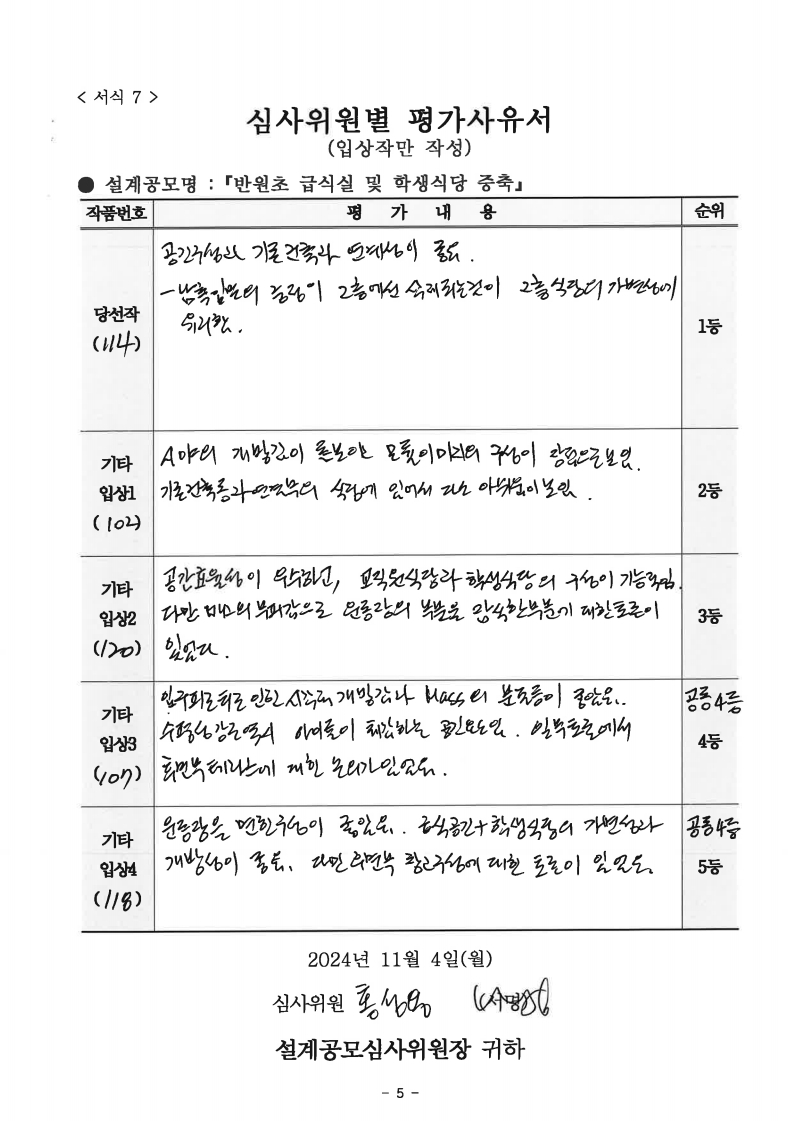 < 서식 7 >
심사위원별 평가사유서
(입상작만 작성)
● 설계공모명 : 『반원초 급식실 및 학생식당 증축』
작품번호 평 가 내 용 순위
당선작
(114)
공간구성과 기존건축과 연계성이 좋음.
-남측일부의 2층에선 삭제되는것이 2층식당의 가변성에
유리함.
1등
기타
입상1
(102)
개방감이 구성이 장점으로보임.
기존건축동과 연결부의 식당에 있어서 다소 아쉬움이보임.
2등
기타
입상2
(120)
공간효율성이 우수하고, 교직원식당과 학생식당의 구성이 기능적임.
다만 매스의 부피감으로 운동장의 부분을 대한토론이
있었다.
3등
기타
입상3
(107)
개방감과 Mass의 좋았음.
수평성강조 아이들이 체감하는 . 일부토론에서
테라스에 대한 논의가있었음.
공동4등
4등
기타
입상4
(118)
운동장을 면한구성이 좋았음. 급식공간+학생식당의 가변성과
개방성이 좋음. 다만 대한 토론이 있었음.
공동4등
5등
2024년 11월 4일(월)
심사위원 홍 (서명)
설계공모심사위원장 귀하
- 5 -